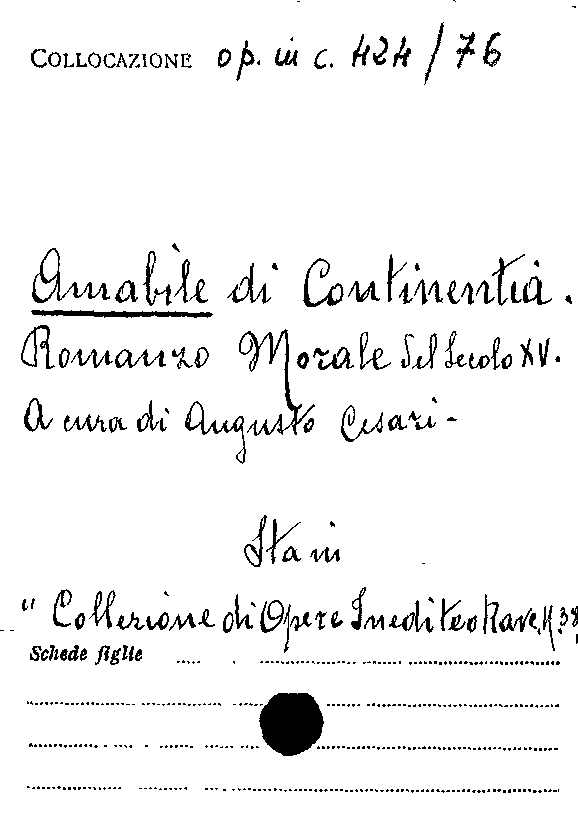 COLLOCAZIONE op. in c. 424/76
Amabile di Continentia.
Romanzo Morale del Secolo XV.
A cura di Augusto Cesari -
Sta in
" Collezione di Opere Inedite o Rare, N. 38
Schede figlie